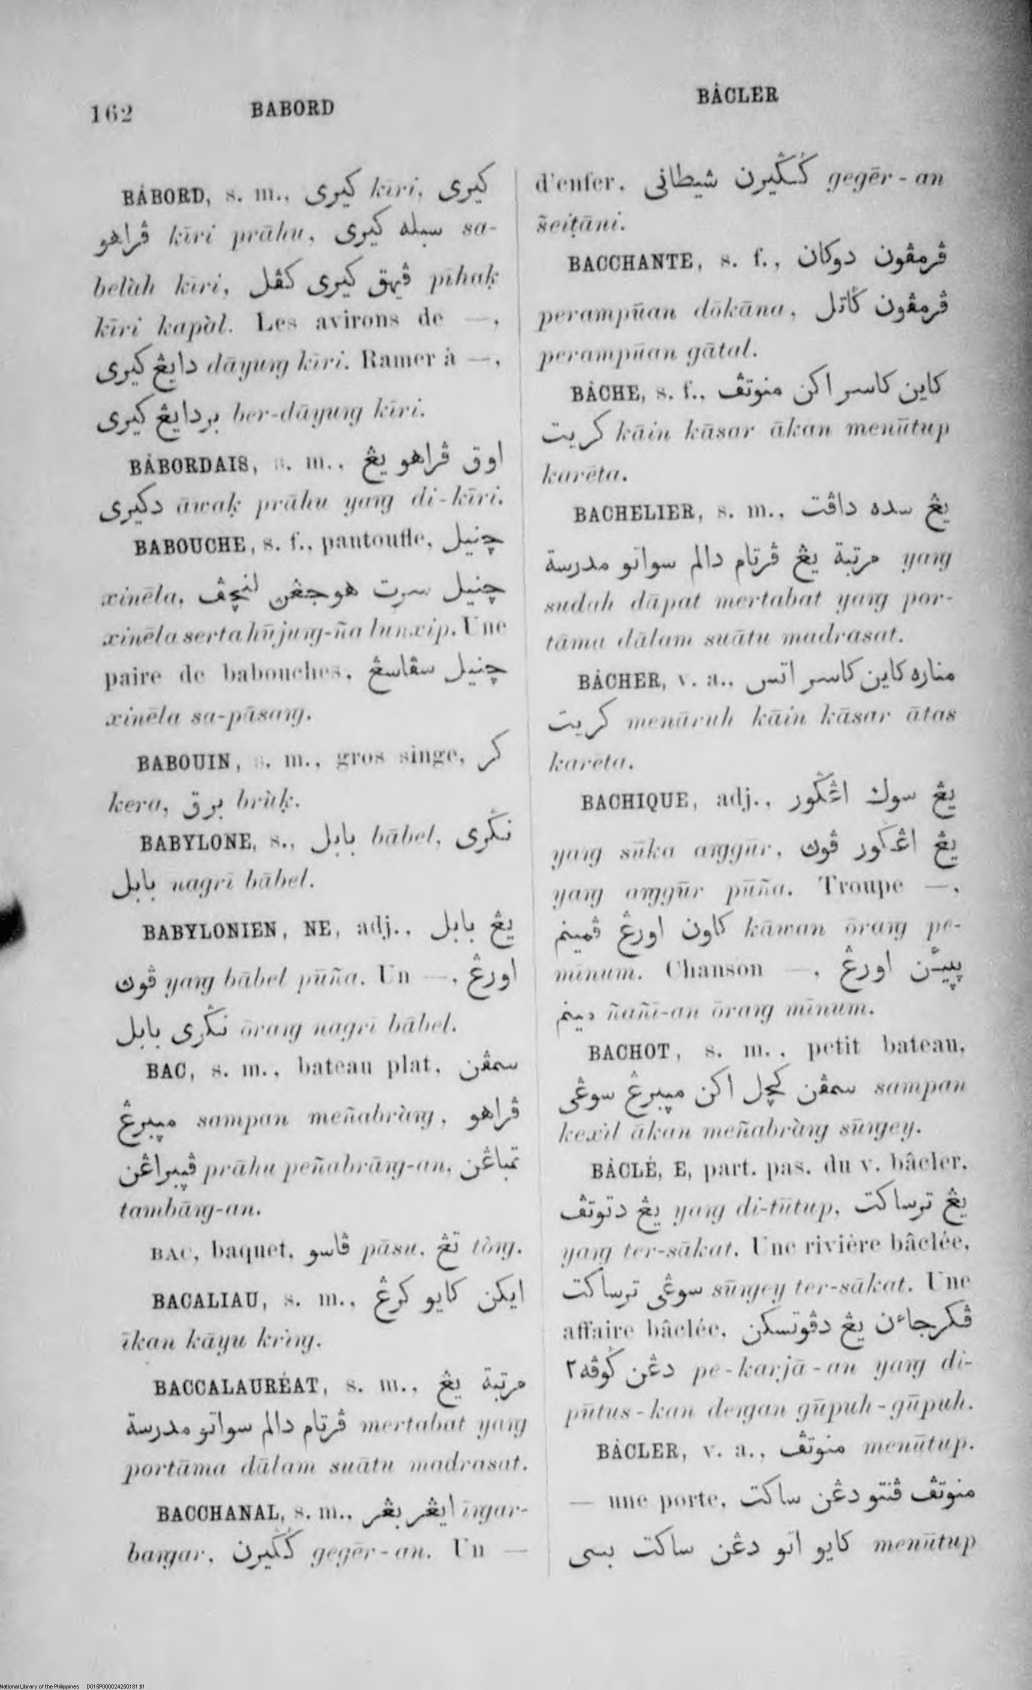 162 BABORD BÂCLER
BÂBORD, s. m., كيرى kīri, كيرى
ڤراهو kīri prāhu, سبله كيرى sa-
belàh kīri, ڤيهق كيرى كڤل pīhaḳ
kīri kapàl. Les avirons de —,
دايڠ كيرى dāyung kīri. Ramer à —,
بردايڠ كيرى ber-dāyung kīri.
BÂBORDAIS, s. m., اوق ڤراهو يڠ
دكيرى āwaḳ prāhu yang di-kīri.
BABOUCHE, s. f., pantoufle, چنيل
xinēla, چنيل سرت هوجڠن لنچڤ
xinēla serta hūjung-ña lunxip. Une
paire de babouches, چنيل سڤاسڠ
xinēla sa-pāsang.
BABOUIN, s. m., gros singe, كر
kera, برق brùḳ.
BABYLONE, s., بابل bābel, نڬرى
بابل nagrī bābel.
BABYLONIEN, NE, adj., يڠ بابل
ڤوڽ yang bābel pūña. Un —, اورڠ
نڬرى بابل ōrang nagrī bābel.
BAC, s. m., bateau plat, سمڤن
مڽبرڠ sampan meñabràng, ڤراهو
ڤڽبراڠن prāhu peñabrāng-an, تمباڠن
tambāng-an.
BAC, baquet, ڤاسو pāsu, تڠ tòng.
BACALIAU, s. m., ايكن كايو كرڠ
īkan kāyu krìng.
BACCALAURÉAT, s. m., مرتبة يڠ
ڤرتام دالم سواتو مدرسة mertabat yang
portāma dālam suātu madrasat.
BACCHANAL, s. m., ايڠر بڠر īngar-
bangar, ڬڬيرن gegēr-an. Un —
d'enfer, ڬڬيرن شيطانى gegēr-an
šeiṭāni.
BACCHANTE, s. f., ڤرمڤون دوكان
perampūan dōkāna, ڤرمڤون ڬاتل
perampūan gātal.
BÂCHE, s. f., كاين كاسر اكن منوتڤ
كريت kāin kāsar ākan menūtup
karēta.
BACHELIER, s. m., يڠ سده داڤت
مرتبة يڠ ڤرتام دالم سواتو مدرسة yang
sudah dāpat mertabat yang por-
tāma dālam suātu madrasat.
BÂCHER, v. a., مناره كاين كاسر اتس
كريت menāruh kāin kāsar ātas
karēta.
BACHIQUE, adj., يڠ سوك اڠڬور
yang sūka anggūr, يڠ اڠڬور ڤوڽ
yang anggūr pūña. Troupe —,
كاون اورڠ ڤمينم kāwan ōrang pe-
mīnum. Chanson —, ڽڽين اورڠ
مينم ñañi-an ōrang mīnum.
BACHOT, s. m., petit bateau,
سمڤن كچل اكن مڽبرڠ سوڠى sampan
kexìl ākan meñabràng sūngey.
BÂCLÉ, E, part. pas. du v. bâcler,
يڠ دتوتڤ yang di-tūtup, يڠ ترساكت
yang ter-sākat. Une rivière bâclée,
سوڠى ترساكت sūngey ter-sākat. Une
affaire bâclée, ڤكرجاءن يڠ دڤوتسكن
دڠن ڬوڤه٢ pe-karjā-an yang di-
pūtus-kan dengan gūpuh-gūpuh.
BÂCLER, v. a., منوتڤ menūtup.
— une porte, منوتڤ ڤنتو دڠن ساكت
كايو اتو دڠن ساكت بسى menūtup
National Library of the Philippines